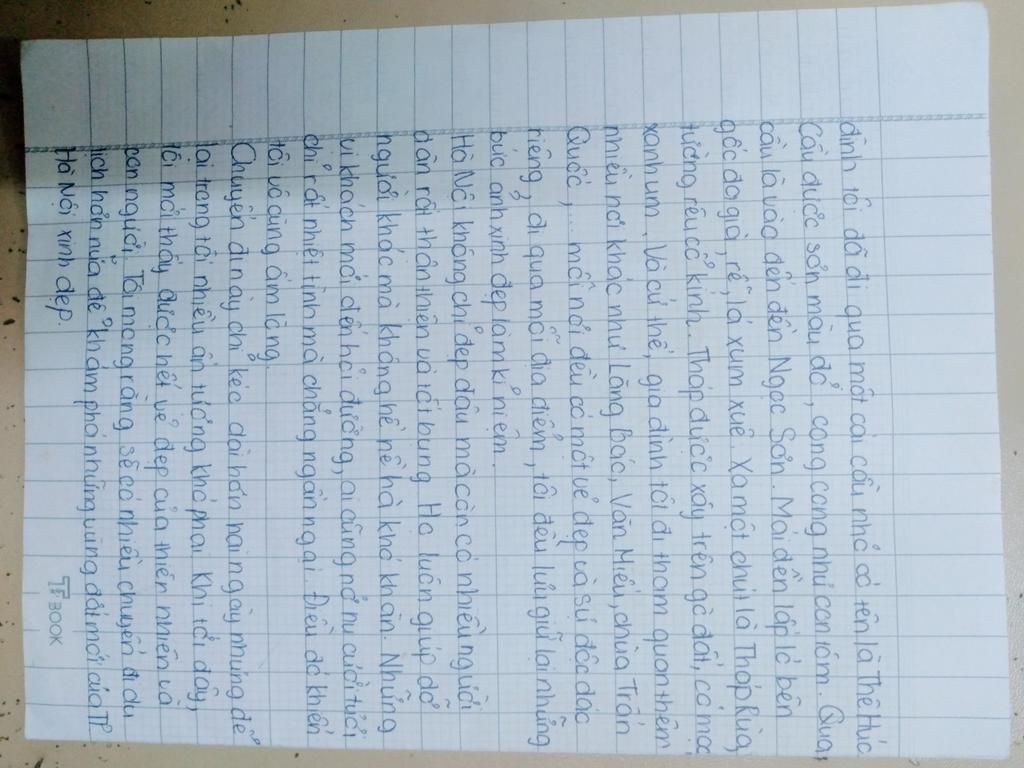 đình tôi đã đi qua một cái cầu nhỏ có tên là Thê Húc
Cầu được sơn màu đỏ, cong cong như con tôm. Qua
cầu là vào đến đền Ngọc Sơn. Mái đền lấp ló bên
gốc đa già, rễ, lá xum xuê. Xa một chút là Tháp Rùa,
tường rêu cổ kính. Tháp được xây trên gò đất, có mọc
xanh um. Và cứ thế, gia đình tôi đi tham quan thêm
nhiều nơi khác như Lăng Bác, Văn Miếu, chùa Trấn
Quốc,... mỗi nơi đều có một vẻ đẹp và sự độc đác
riêng, đi qua mỗi địa điểm, tôi đều lưu giữ lại những
bức ảnh xinh đẹp làm kỉ niệm.
Hà Nội không chỉ đẹp đâu mà còn có nhiều người
dân rất thân thiện và tốt bụng. Họ luôn giúp đỡ
người khác mà không hề nề hà khó khăn. Những
vị khách mới đến hỏi đường, ai cũng nở nụ cười tươi
chỉ rất nhiệt tình mà chẳng ngần ngại. Điều đó khiến
tôi vô cùng ấm lòng.
Chuyến đi này chỉ kéo dài hơn hai ngày nhưng để
lại trong tôi nhiều ấn tượng khó phai. Khi tới đây,
tôi mới thấy được hết vẻ đẹp của thiên nhiên và
con người. Tôi mong rằng sẽ có nhiều chuyến đi du
lịch hơn nữa để khám phá những vùng đất mới của TP
Hà Nội xinh đẹp.
TT BOOK